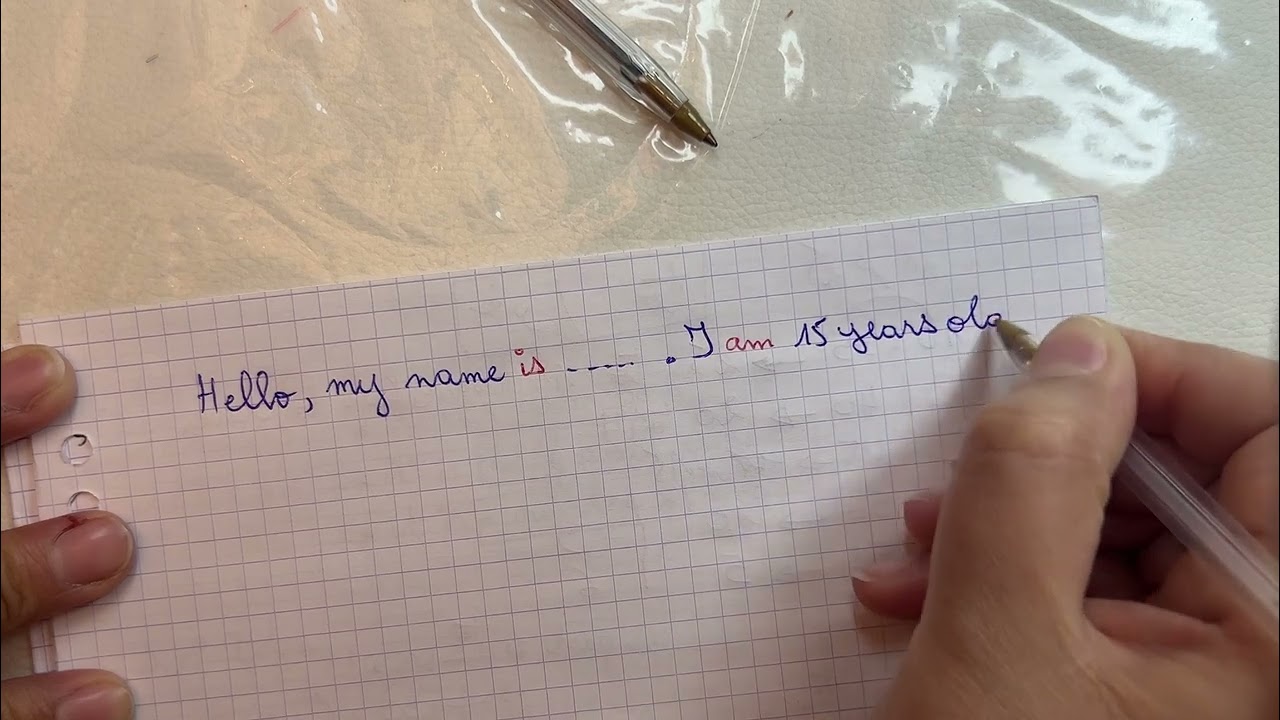 Hello, my name is ----- . I am 15 years old